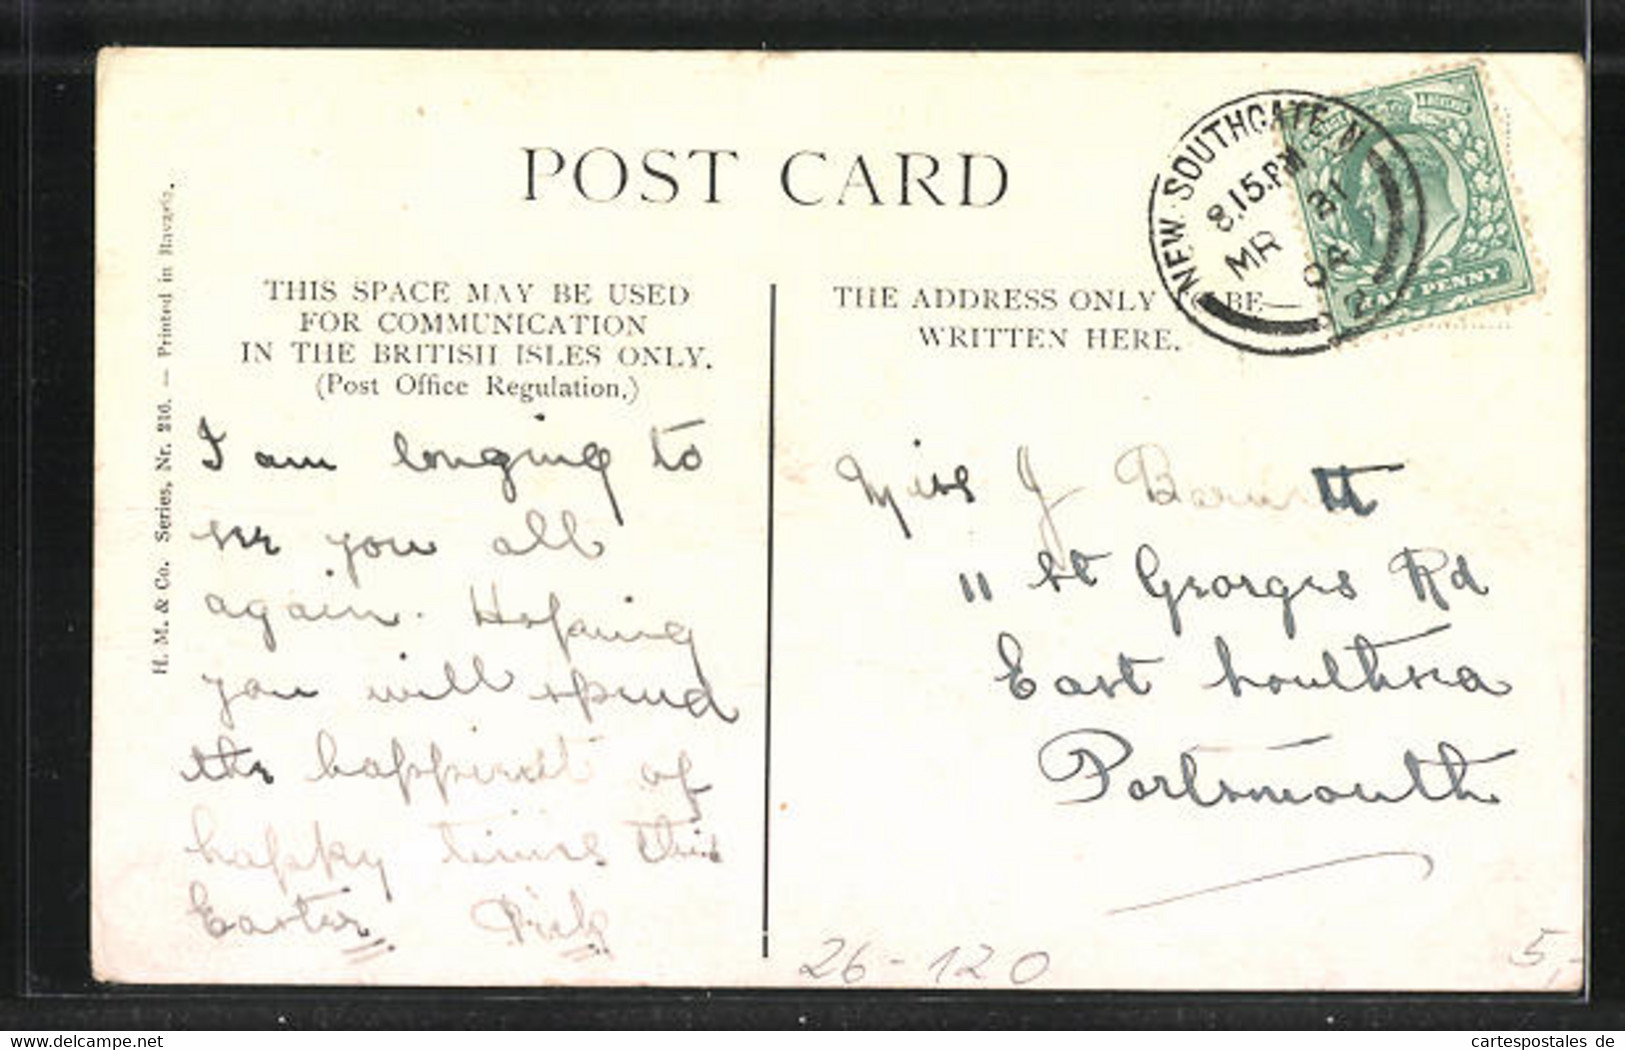 POST CARD
THIS SPACE MAY BE USED
FOR COMMUNICATION
IN THE BRITISH ISLES ONLY.
(Post Office Regulation.)
H. M. & Co. Series, Nr. 216. — Printed in Bavaria.
I am longing to
see you all
again. Hoping
you will spend
the happiest of
happy times this
Easter
THE ADDRESS ONLY BE
WRITTEN HERE.
NEW SOUTHGATE. N
8.15.PM
MR 31
HALF PENNY
Miss J Barnett
11 St Georges Rd
East Southsea
Portsmouth
26-120
5,-
www.cartespostales.de